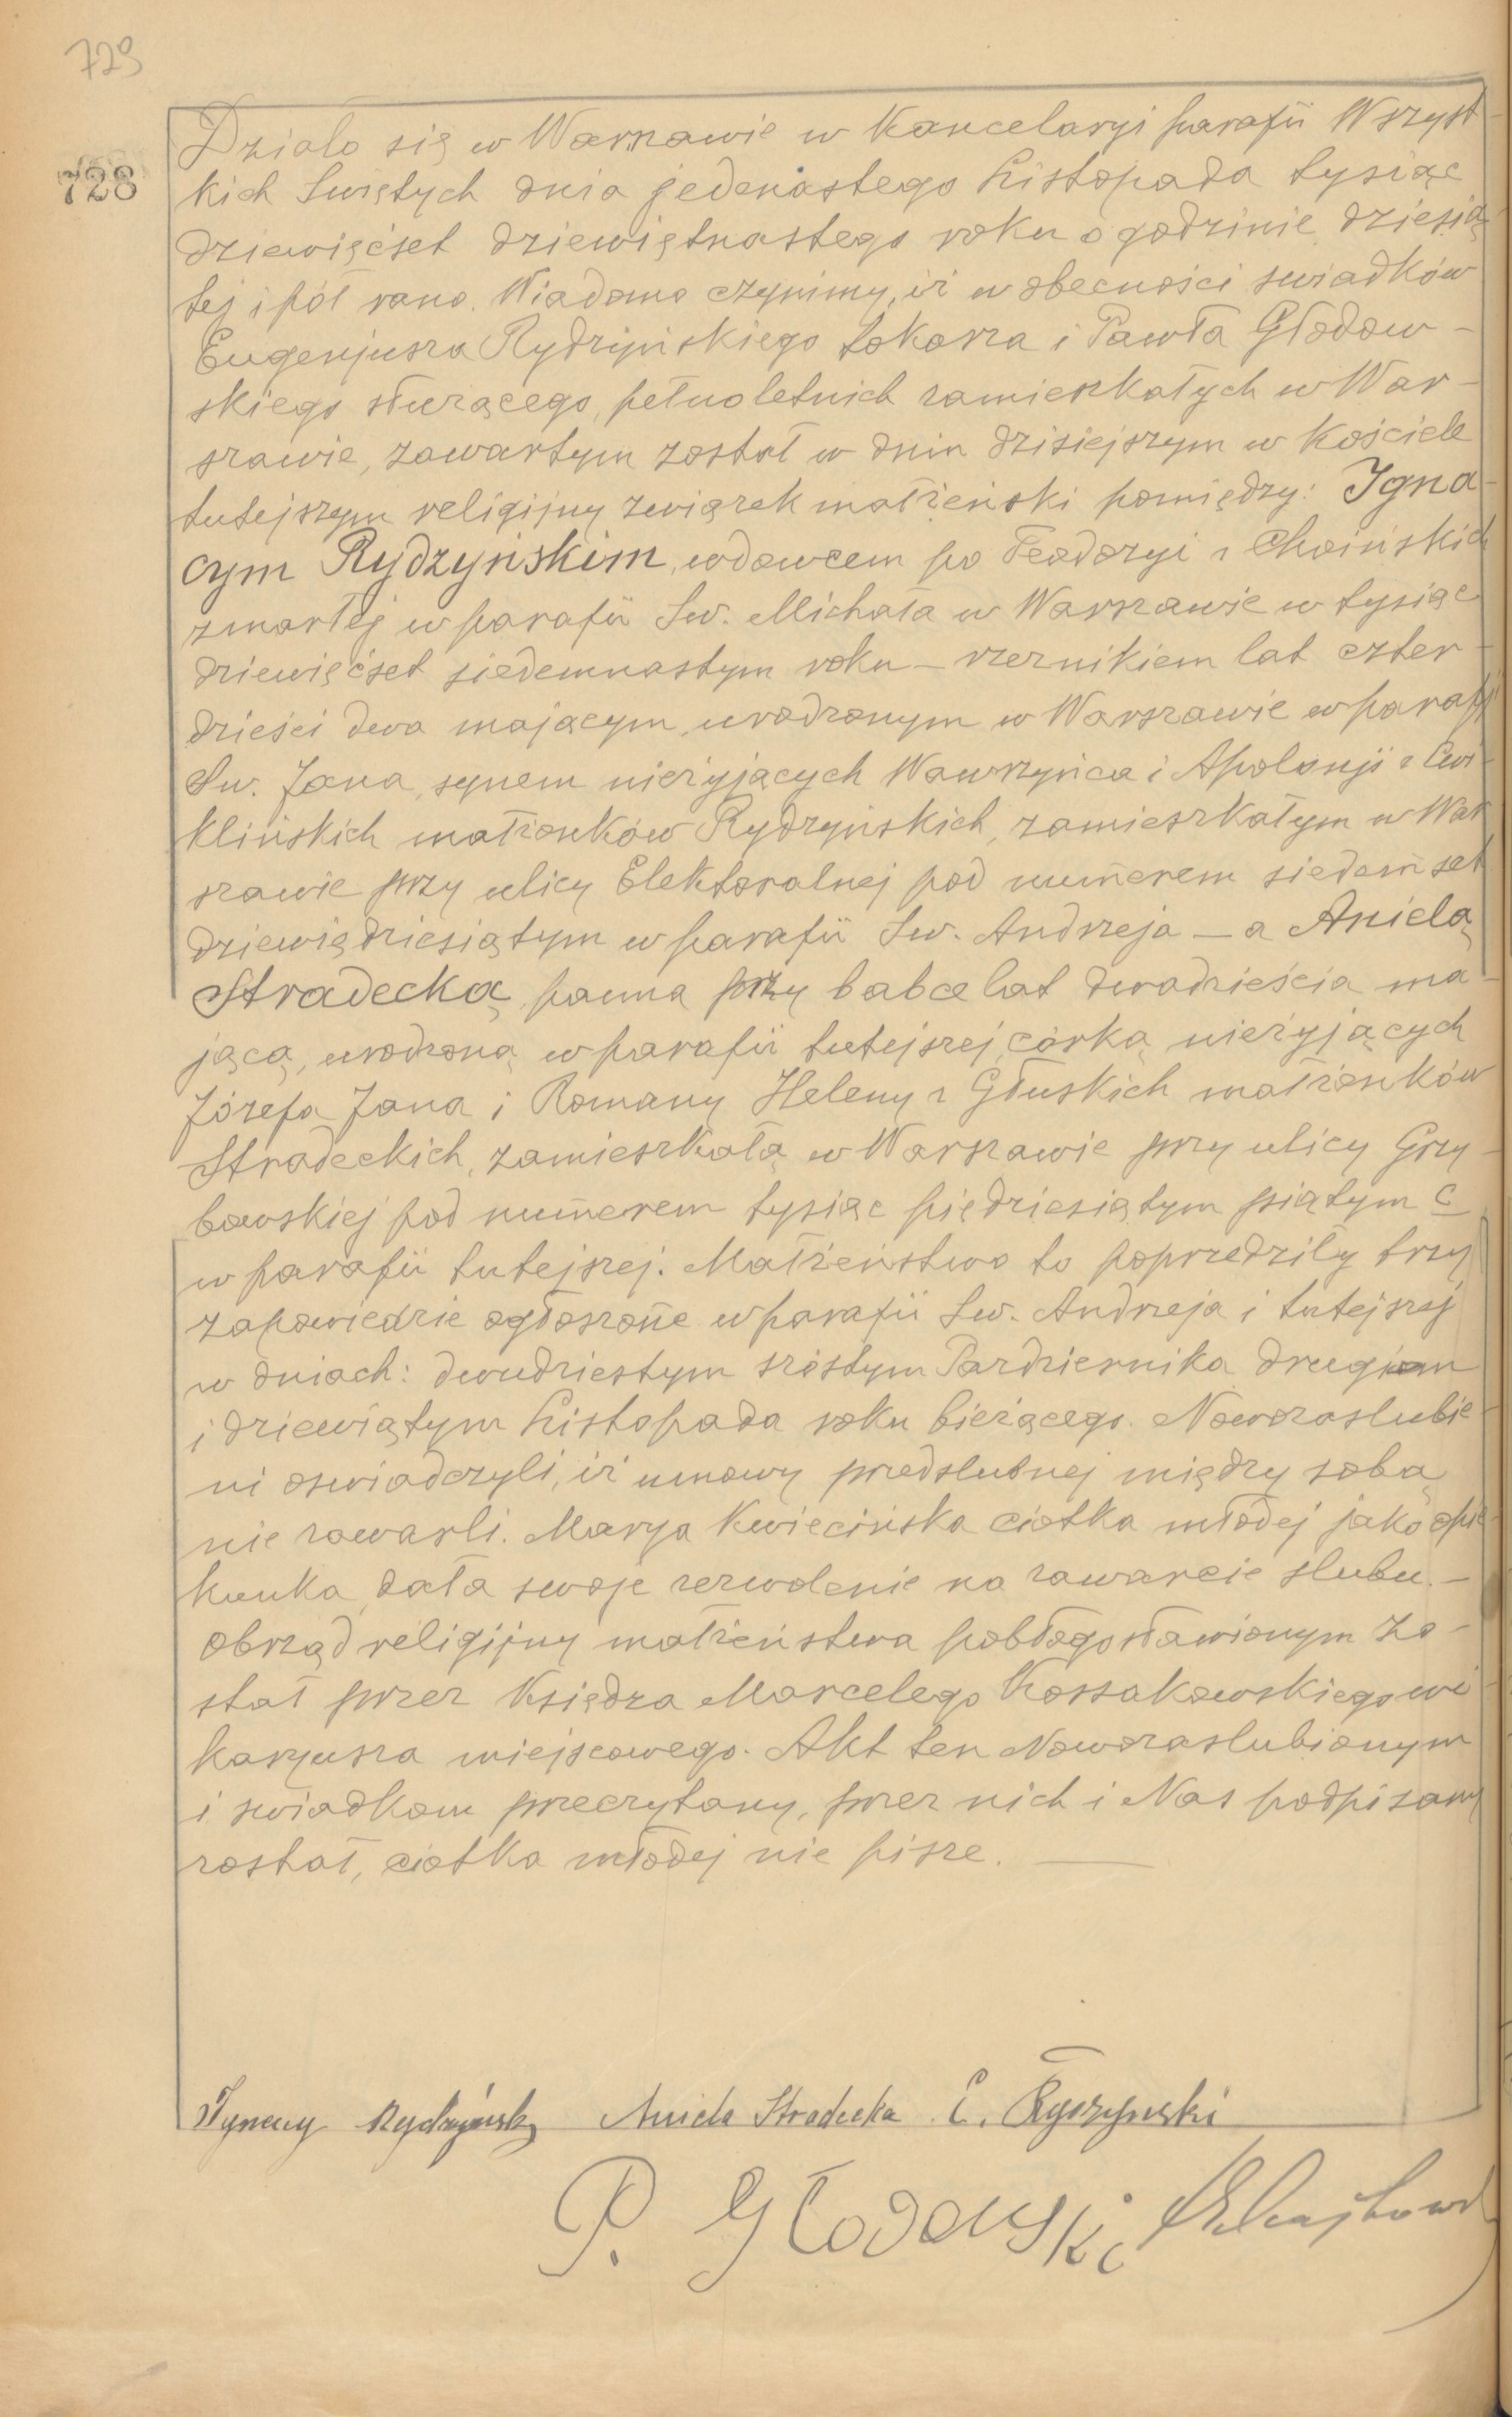 729
728
Działo się w Warszawie w Kancelaryi parafii Wszyst
kich Świętych dnia jedenastego Listopada tysiąc
dziewięćset dziewiętnastego roku o godzinie dziesią
tej i pół rano. Wiadomo czynimy, iż w obecności świadków
Eugenjusza Rydzyńskiego tokarza i Pawła Głodow-
skiego służącego, pełnoletnich zamieszkałych w War-
szawie, zawartym został w dniu dzisiejszym w Kościele
tutejszym religijny związek małżeński pomiędzy: Igna-
cym Rydzyńskim, wdowcem po Teodozyi z Choińskich
zmarłej w parafii Św. Michała w Warszawie w tysiąc
dziewięćset siedemnastym roku – rzeźnikiem lat czter-
dzieści dwa mającym, urodzonym w Warszawie w parafji
Św. Jana, synem nieżyjących Wawrzyńca i Apolonji z Ćwi-
klińskich małżonków Rydzyńskich, zamieszkałym w War
szawie przy ulicy Elektoralnej pod numerem siedemset
dziewiędziesiątym w parafii Św. Andrzeja – a Anielą
Stradecką, panną przy babce lat dwadzieścia ma-
jącą, urodzoną w parafii tutejszej, córką nieżyjących
Józefa Jana i Romany Heleny z Głuskich małżonków
Stradeckich, zamieszkałą w Warszawie przy ulicy Grzy-
bowskiej pod numerem tysiąc piędziesiątym piątym C
w parafii tutejszej. Małżeństwo to poprzedziły trzy
zapowiedzie ogłoszone w parafii Św. Andrzeja i tutejszej
w dniach: dwudziestym szóstym Pazdziernika drugiem
i dziewiątym Listopada roku bieżącego. Nowozaslubie-
ni oswiadczyli, iż umowy przedslubnej między sobą
nie zawarli. Marya Kwiecińska ciotka młodej jako opie-
kunka, dała swoje zezwolenie na zawarcie slubu. –
Obrząd religijny małżeństwa pobłogosławionym zo-
stał przez Księdza Marcelego Kossakowskiego wi-
karjusza miejscowego. Akt ten Nowozaslubionym
i swiadkom przeczytany, przez nich i Nas podpisany
został, ciotka młodej nie pisze. —
Ignacy Rydzyński Aniela Stradecka E. Ryszynski
P. Głodowski